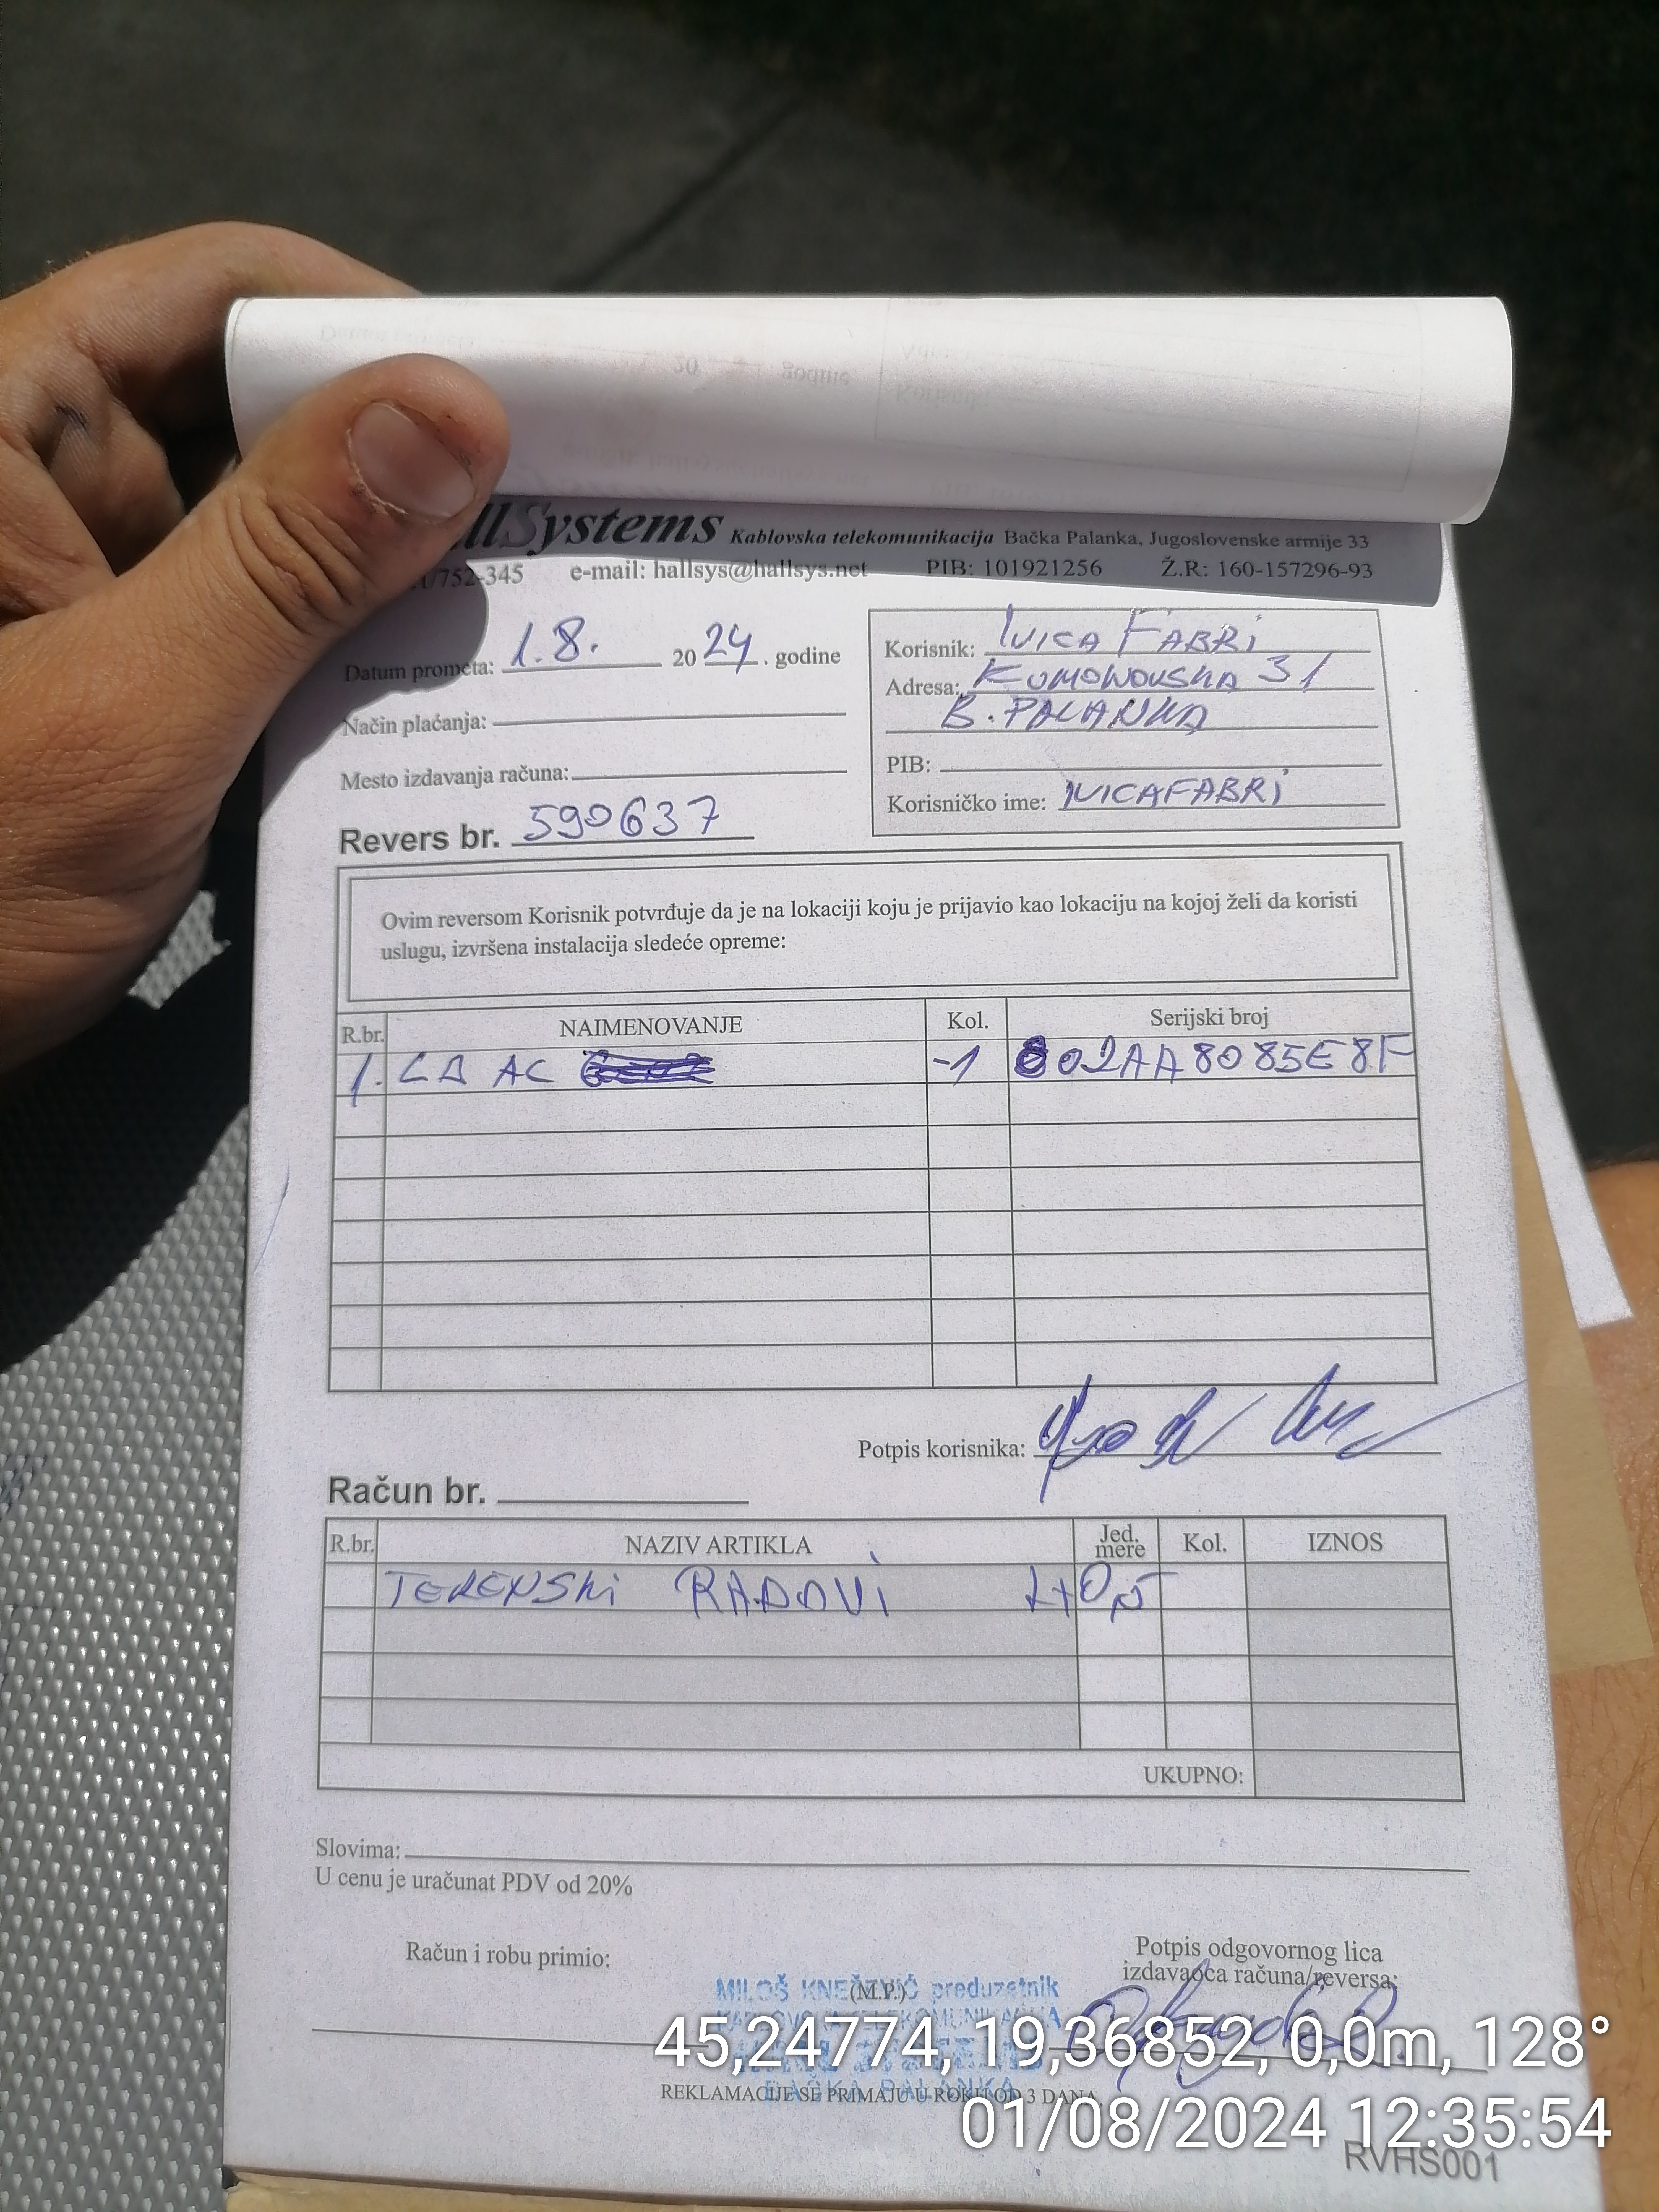 llSystems Kablovska telekomunikacija Bačka Palanka, Jugoslovenske armije 33
/752-345 e-mail: hallsys@hallsys.net PIB: 101921256 Ž.R: 160-157296-93
Datum prometa: 1.8. 2024. godine
Način plaćanja:
Mesto izdavanja računa:
Revers br. 590637
Korisnik: IVICA FABRI
Adresa: KUMONOVSKA 31
B. PALANKA
PIB:
Korisničko ime: IVICAFABRI
Ovim reversom Korisnik potvrđuje da je na lokaciji koju je prijavio kao lokaciju na kojoj želi da koristi
uslugu, izvršena instalacija sledeće opreme:
R.br. NAIMENOVANJE Kol. Serijski broj
1. LB AC -1 802AA8085E8F
Potpis korisnika:
Račun br.
R.br. NAZIV ARTIKLA Jed. mere Kol. IZNOS
TERENSKI RADOVI
UKUPNO:
Slovima:
U cenu je uračunat PDV od 20%
Račun i robu primio:
(M.P.)
Potpis odgovornog lica
izdavaoca računa/reversa:
MILOŠ KNEŽEVIĆ preduzetnik
KABLOVSKA TELEKOMUNIKACIJA
BAČKA PALANKA
REKLAMACIJE SE PRIMAJU U ROKU OD 3 DANA
45,24774, 19,36852, 0,0m, 128°
01/08/2024 12:35:54
RVHS001